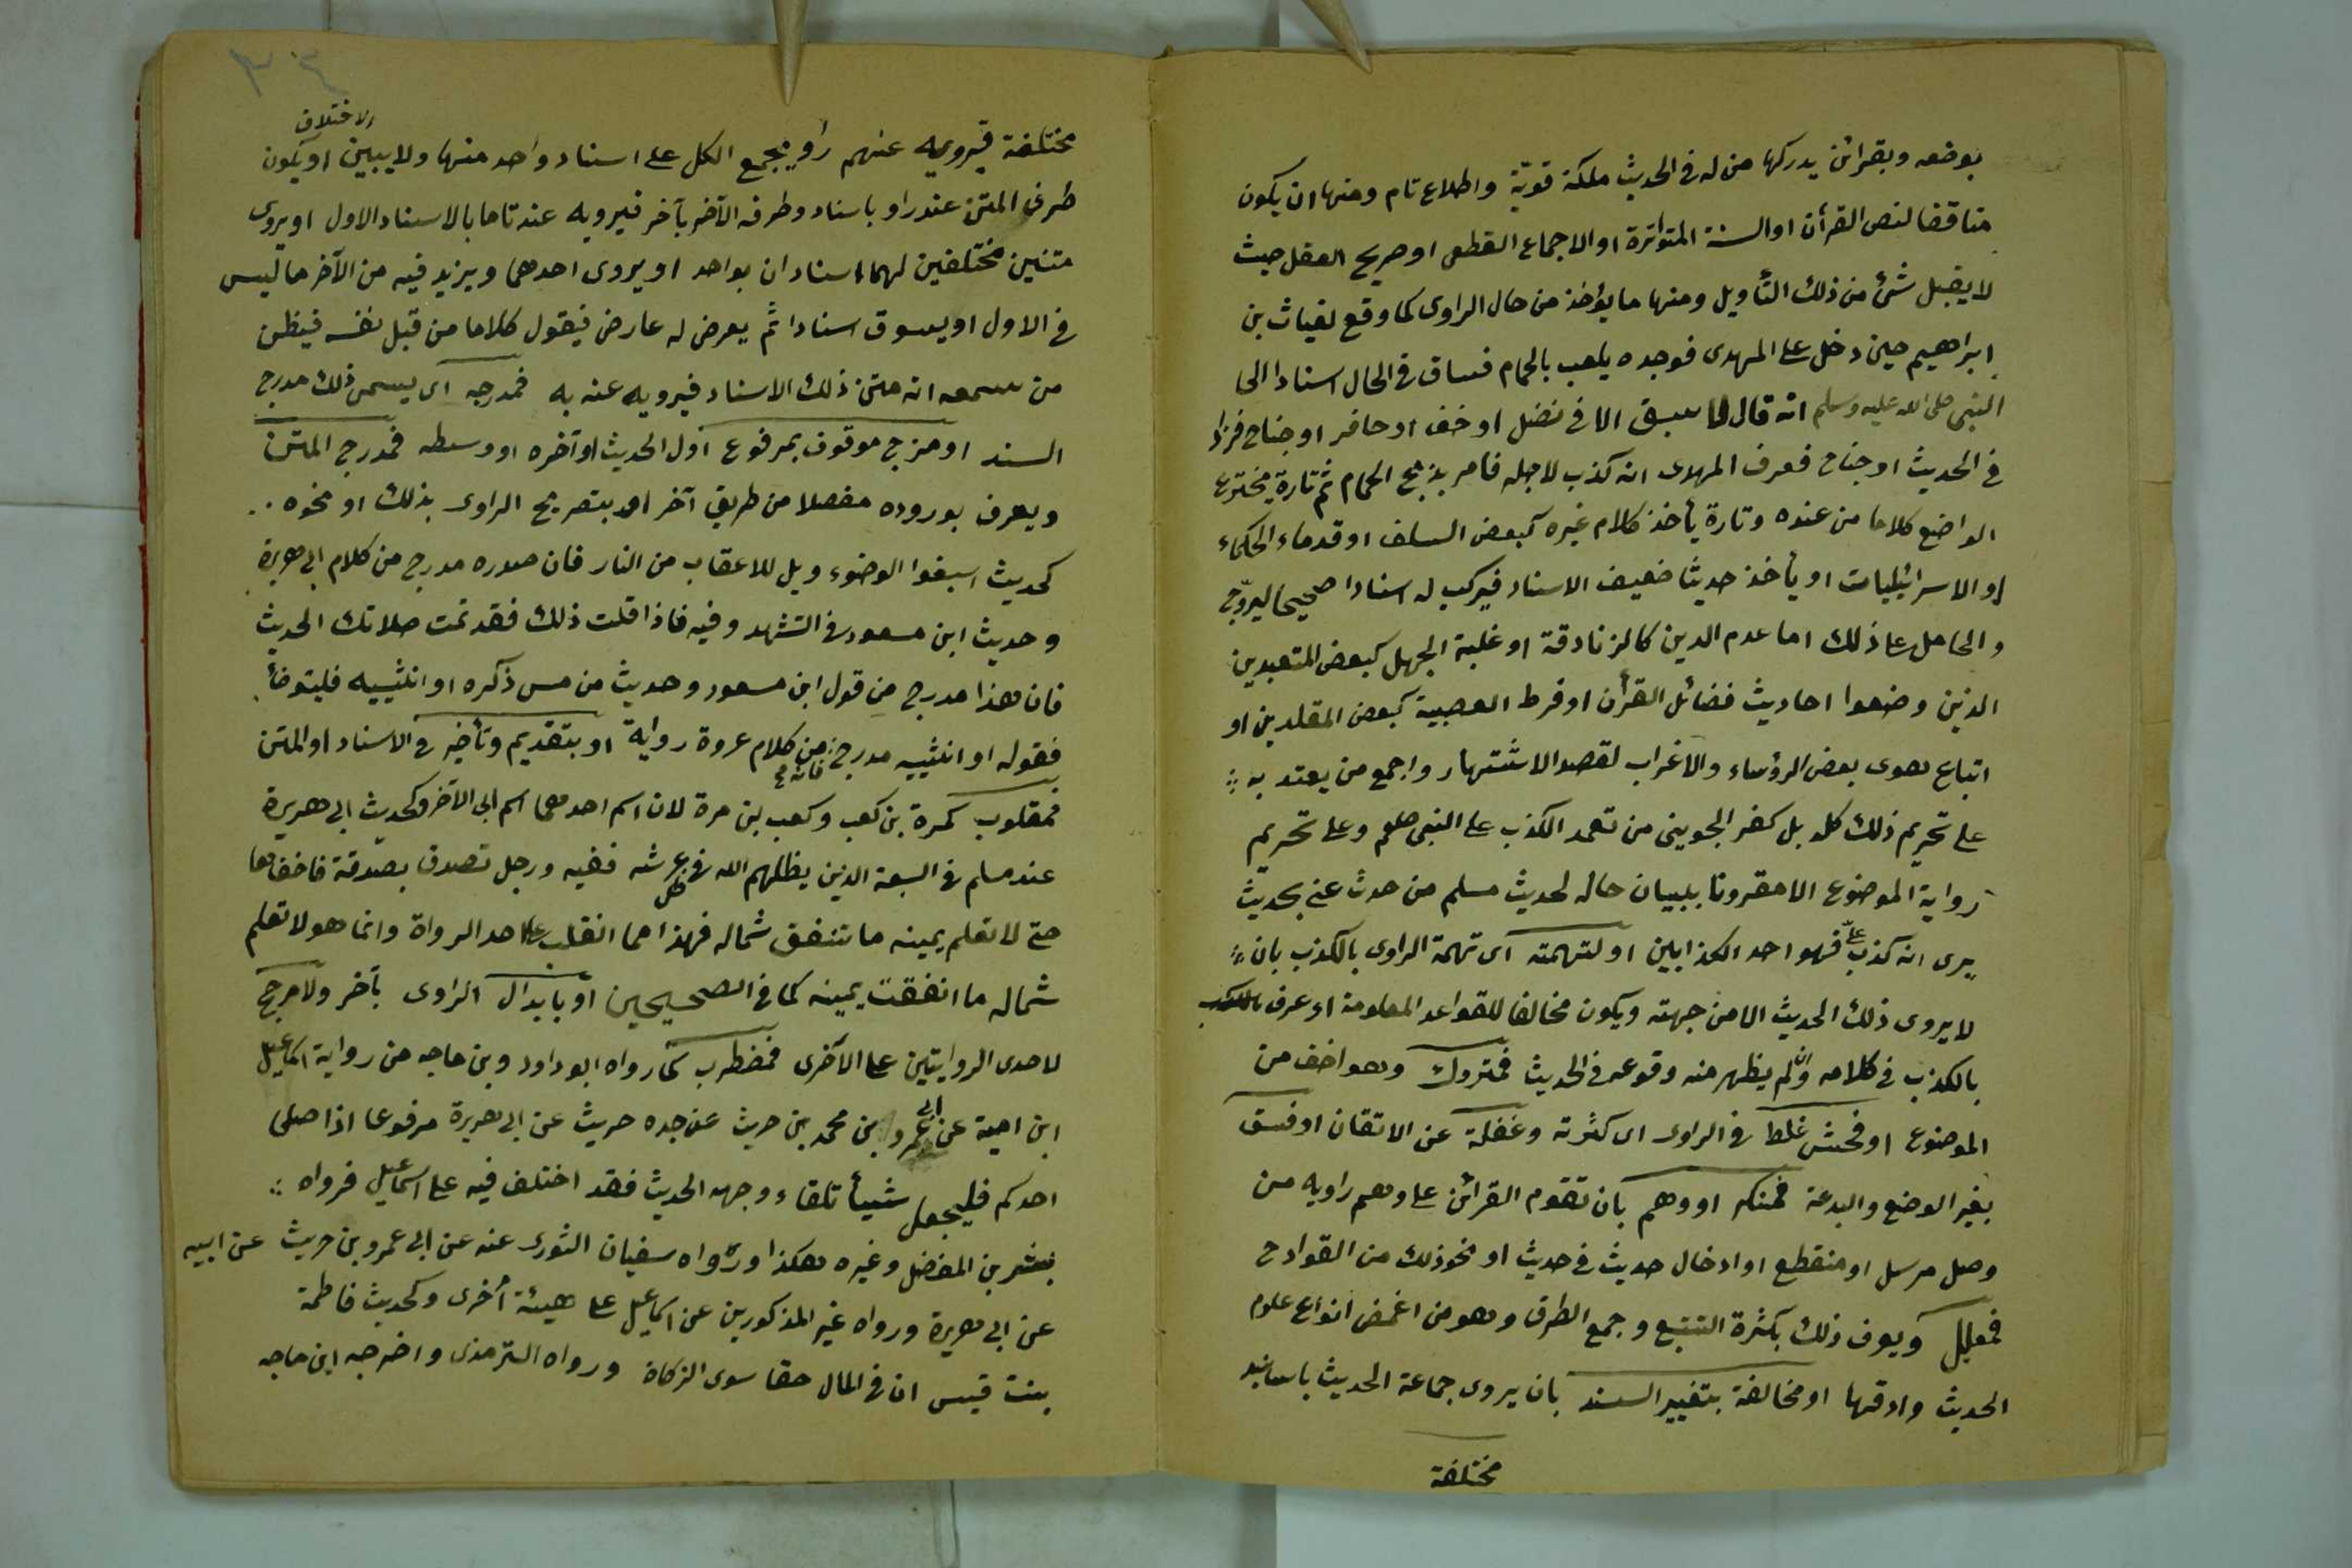 بوضعه وبقرائن يدركها من له فى الحديث ملكة قوية واطلاع تام ومنها ان يكون
مناقضا لنص القرأن او السنة المتواترة او الاجماع القطعى او صريح العقل حيث
لا يقبل شئ من ذلك التأويل ومنها ما يؤخذ من حال الراوى كما وقع لغياث بن
ابراهيم حين دخل على المهدى فوجده يلعب بالحمام فساق فى الحال اسنادا الى
النبى صلى الله عليه وسلم انه قال لا سبق الا فى نضل او خف او حافر او جناح فزاد
فى الحديث او جناح فعرف المهدى انه كذب لاجله فامر بذبح الحمام ثم تارة يخترع
الواضع كلاما من عنده وتارة يأخذ كلام غيره كبعض السلف او قدماء الحكماء
او الاسرائيليات او يأخذ حديثا ضعيف الاسناد فيركب له اسنادا صحيحا ليروّج
والحامل على ذلك اما عدم الدين كالزنادقة او غلبة الجهل كبعض المتعبدين
الذين وضعوا احاديث فضائل القرأن او فرط العصبية كبعض المقلدين او
اتباع هوى بعض الرؤساء والاغراب لقصد الاشتهار واجمع من يعتد به
على تحريم ذلك كله بل كفر الجوينى من تعمد الكذب على النبى صلعم وعلى تحريم
رواية الموضوع الا مقرونا ببيان حاله لحديث مسلم من حدث عنى بحديث
يرى انه كذب علىّ فهو احد الكذابين او لتهمته اى تهمة الراوى بالكذب بان
لا يروى ذلك الحديث الا من جهته ويكون مخالفا للقواعد المعلومة او عرف بالكذب
بالكذب فى كلامه وان لم يظهر منه وقوعه فى الحديث فمتروك وهو اخف من
الموضوع او فحش غلط فى الراوى اى كثرته وغفلة عن الاتقان او فسق
بغير الوضع والبدعة فمنكر او وهم بان تقوم القرائن على وهم راويه من
وصل مرسل او منقطع او ادخال حديث فى حديث او نحو ذلك من القوادح
فمعلل ويعرف ذلك بكثرة التتبع وجمع الطرق وهو من اغمض انواع علوم
الحديث وادقها او مخالفة بتغيير السند بان يروى جماعة الحديث باسانيد
مختلفة
٣٤
الاختلاف
مختلفة فيرويه عنهم راو يجمع الكل على اسناد واحد منها ولا يبين او يكون
طرف المتن عند راو باسناد وطرفه الآخر بآخر فيرويه عنه تاما بالاسناد الاول او يروى
متنين مختلفين لهما اسنادان بواحد او يروى احدهما ويزيد فيه من الآخر ما ليس
فى الاول او يسوق اسنادا ثم يعرض له عارض فيقول كلاما من قبل نفسه فيظن
من سمعه انه متن ذلك الاسناد فيرويه عنه به فمدرجه اى يسمى ذلك مدرج
السند او مزج موقوف بمرفوع اول الحديث او آخره او وسطه فمدرج المتن
ويعرف بوروده مفصلا من طريق آخر او بتصريح الراوى بذلك او نحوه
كحديث اسبغوا الوضوء ويل للاعقاب من النار فان صدره مدرج من كلام ابى هريرة
وحديث ابن مسعود فى التشهد وفيه فاذا قلت ذلك فقد تمت صلاتك الحديث
فان هذا مدرج من قول ابن مسعود وحديث من مس ذكره او انثييه فليتوضأ
فقوله او انثييه مدرج فانه من كلام عروة رواية او بتقديم وتأخير فى الاسناد او المتن
فمقلوب كمرة بن كعب وكعب بن مرة لان اسم احدهما اسم ابى الآخر وكحديث ابى هريرة
عند مسلم فى السبعة الذين يظلهم الله فى ظل عرشه ففيه ورجل تصدق بصدقة فاخفاها
حتى لا تعلم يمينه ما تنفق شماله فهذا مما انقلب على احد الرواة وانما هو لا تعلم
شماله ما انفقت يمينه كما فى الصحيحين او بابدال الراوى بآخر ولا مرجح
لاحدى الروايتين على الآخرى فمضطرب كما رواه ابو داود وبن ماجه من رواية اسماعيل
ابن امية عن ابى عمرو بن محمد بن حريث عن جده حريث عن ابى هريرة مرفوعا اذا صلى
احدكم فليجعل شيأ تلقاء وجهه الحديث فقد اختلف فيه على اسماعيل فرواه
بشر بن المفضل وغيره هكذا ورواه سفيان الثورى عنه عن ابى عمرو بن حريث عن ابيه
عن ابى هريرة ورواه غير المذكورين عن اسماعيل على هيئة أخرى وكحديث فاطمة
بنت قيس ان فى المال حقا سوى الزكاة ورواه الترمذى واخرجه ابن ماجه